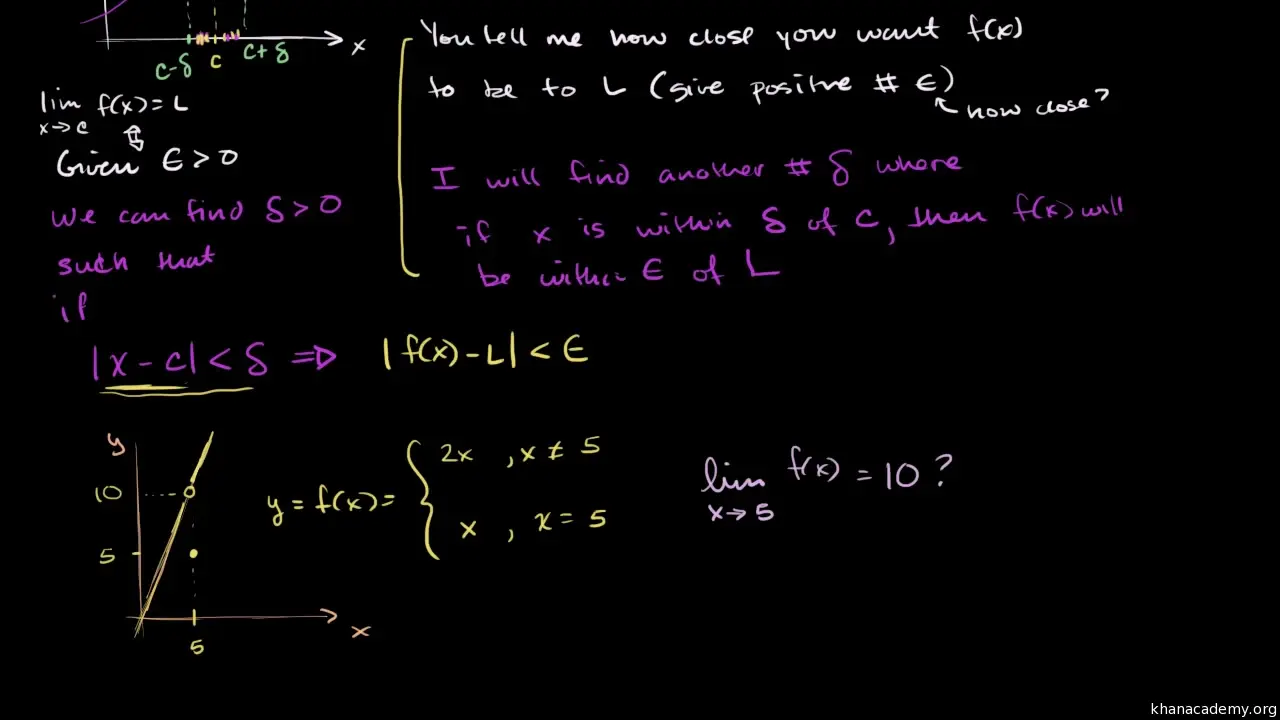 x
c-δ c c+δ
lim f(x) = L
x→c
Given ϵ > 0
We can find δ > 0
such that
if
|x - c| < δ ⇒ |f(x) - L| < ϵ
You tell me how close you want f(x)
to be to L (give positive # ϵ)
how close?
I will find another # δ where
if x is within δ of c, then f(x) will
be within ϵ of L
y
10
5
5
x
y = f(x) = { 2x , x ≠ 5
x , x = 5
lim f(x) = 10 ?
x→5
khanacademy.org